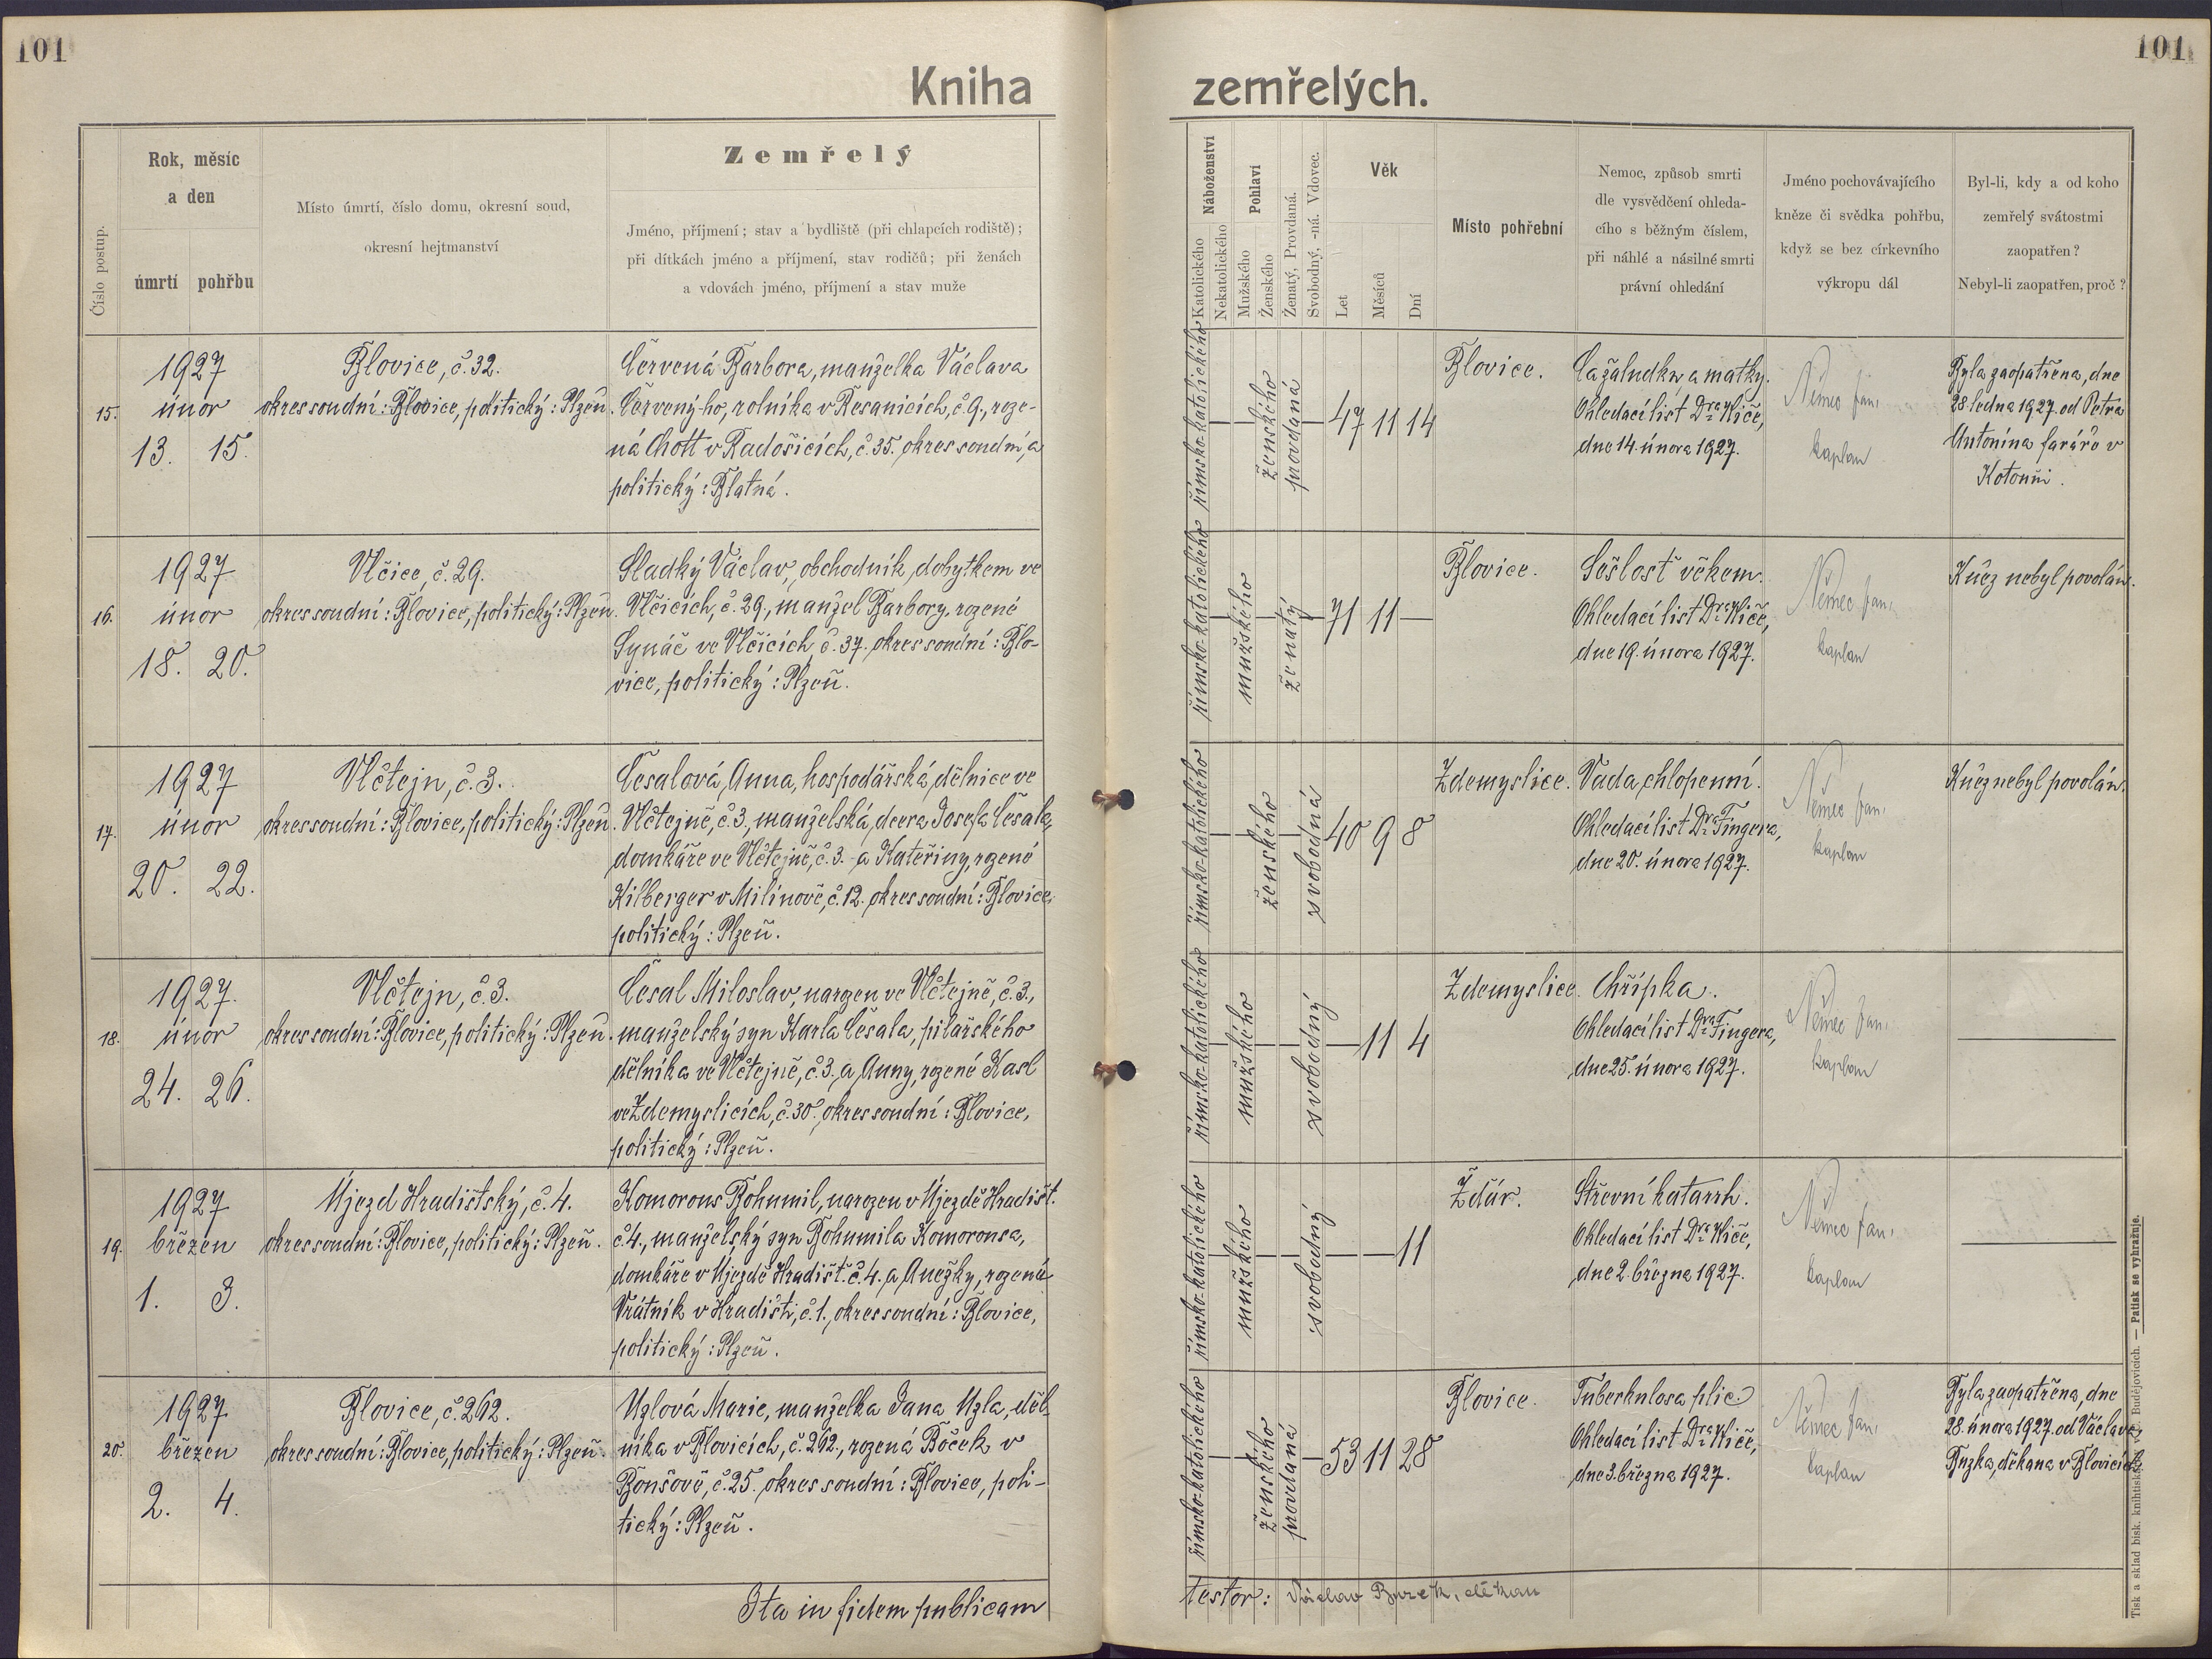 101
101
Kniha
zemřelých.
Číslo postup.
Rok, měsíc
a den
úmrtí
pohřbu
Místo úmrtí, číslo domu, okresní soud,
okresní hejtmanství
Zemřelý
Jméno, příjmení; stav a bydliště (při chlapcích rodiště);
při dítkách jméno a příjmení, stav rodičů; při ženách
a vdovách jméno, příjmení a stav muže
Náboženství
Katolického
Nekatolického
Pohlaví
Mužského
Ženského
Ženatý, Provdaná.
Svobodný, -ná. Vdovec.
Věk
Let
Měsíců
Dní
Místo pohřební
Nemoc, způsob smrti
dle vysvědčení ohleda-
cího s běžným číslem,
při náhlé a násilné smrti
právní ohledání
Jméno pochovávajícího
kněze či svědka pohřbu,
když se bez církevního
výkropu dál
Byl-li, kdy a od koho
zemřelý svátostmi
zaopatřen?
Nebyl-li zaopatřen, proč?
15.
1927
únor
13. 15.
Blovice, č. 32.
okres soudní: Blovice, politický: Plzeň.
Červená Barbora, manželka Václava
Červený-ho, rolníka v Řesanicích, č. 9., roze-
ná Chott v Radošicích, č. 35. okres soudní, a
politický: Blatná.
římsko-katolického
ženského
provdaná
47 11 14
Blovice.
Ca žaludku a matky.
Ohledací list Dra Kliče,
dne 14. února 1927.
Němec Jan,
kaplan
Byla zaopatřena, dne
28. ledna 1927. od Petra
Antonína faráře v
Kotouni.
16.
1927
únor
18. 20.
Vlčice, č. 29.
okres soudní: Blovice, politický: Plzeň.
Sladký Václav, obchodník, dobytkem ve
Vlčicích, č. 29., manžel Barbory, rozené
Synáč ve Vlčicích, č. 37. okres soudní: Blo-
vice, politický: Plzeň.
římsko-katolického
mužského
ženatý
71 11 —
Blovice.
Sešlost věkem.
Ohledací list Dra Kliče,
dne 19. února 1927.
Němec Jan,
kaplan
Kněz nebyl povolán.
17.
1927
únor
20. 22.
Vlčtejn, č. 3.
okres soudní: Blovice, politický: Plzeň.
Česalová, Anna, hospodářská, dělnice ve
Vlčtejně, č. 3., manželská, dcera Josefa Česala,
domkáře ve Vlčtejně, č. 3. a Kateřiny, rozené
Kilberger v Milínově, č. 12. okres soudní: Blovice,
politický: Plzeň.
římsko-katolického
ženského
svobodná
40 9 8
Zdemyslice.
Vada, chlopenní.
Ohledací list Dra Fingera,
dne 20. února 1927.
Němec Jan,
kaplan
Kněz nebyl povolán.
18.
1927.
únor
24. 26.
Vlčtejn, č. 3.
okres soudní: Blovice, politický: Plzeň.
Česal Miloslav, narozen ve Vlčtejně, č. 3.,
manželský syn Karla Česala, pilařského
dělníka ve Vlčtejně, č. 3. a Anny, rozené Kasl
ve Zdemyslicích, č. 30., okres soudní: Blovice,
politický: Plzeň.
římsko-katolického
mužského
svobodný
11 4
Zdemyslice.
Chřipka.
Ohledací list Dra Fingera,
dne 25. února 1927.
Němec Jan,
kaplan
19.
1927
březen
1. 3.
Újezd Hradištský, č. 4.
okres soudní: Blovice, politický: Plzeň.
Komorous Bohumil, narozen v Újezdě Hradišt.
č. 4., manželský syn Bohumila Komorousa,
domkáře v Újezdě Hradišt. č. 4. a Anežky, rozená
Vrátník v Hradišti, č. 1., okres soudní: Blovice,
politický: Plzeň.
římsko-katolického
mužského
svobodný
11
Ždár.
Střevní katarrh.
Ohledací list Dra Kliče,
dne 2. března 1927.
Němec Jan,
kaplan
20.
1927
březen
2. 4.
Blovice, č. 262.
okres soudní: Blovice, politický: Plzeň.
Uzlová Marie, manželka Jana Uzla, děl-
níka v Blovicích, č. 262., rozená Böček v
Bonšově, č. 25. okres soudní: Blovice, poli-
tický: Plzeň.
římsko-katolického
ženského
provdaná
53 11 28
Blovice.
Tuberkulosa plic
Ohledací list Dra Kliče,
dne 3. března 1927.
Němec Jan,
kaplan
Byla zaopatřena, dne
28. února 1927. od Václava
Buzka, děkana v Blovicích.
Ita in fidem publicam
testor: Václav Buzek, děkan
Tisk a sklad bisk. knihtiskárny v Č. Budějovicích. — Patisk se vyhražuje.